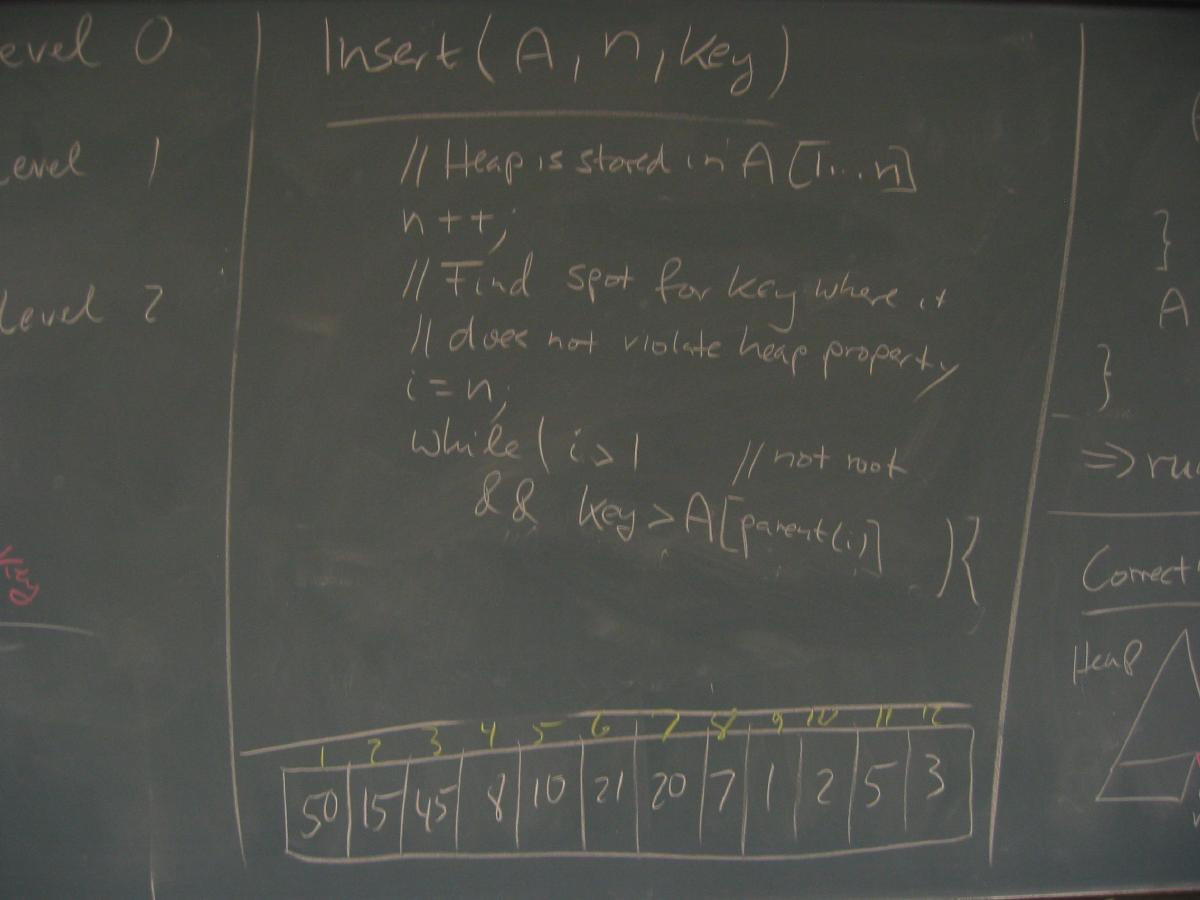 evel 0
Level 1
Level 2
Insert(A, n, key)
// Heap is stored in A[1...n]
n++;
// Find spot for key where it
// does not violate heap property
i = n;
while ( i > 1 // not root
&& key > A[parent(i)] ) {
1 2 3 4 5 6 7 8 9 10 11 12
50 15 45 8 10 21 20 7 1 2 5 3
}
A
}
⇒ ru
Correct
Heap